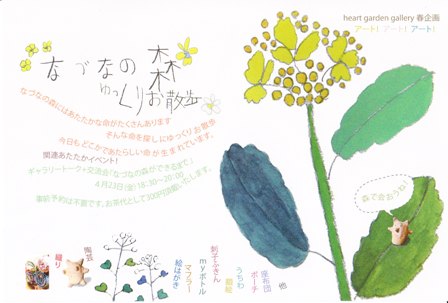 heart garden gallery 春企画
アート! アート! アート!
なづなの森
ゆっくりお散歩
なづなの森にはあたたかな命がたくさんあります
そんな命を探しにゆっくりお散歩
今日もどこかであたらしい命が生まれています。
関連あたたかイベント!
ギャラリートーク+交流会「なづなの森ができるまで」
4月23日(金)18:30~20:00
事前予約は不要です。お茶代として300円頂戴いたします。
森で会おうね!
陶芸
織り
絵はがき
マフラー
myボトル
刺子ふきん
うちわ
顔絵
ポーチ
座布団
他